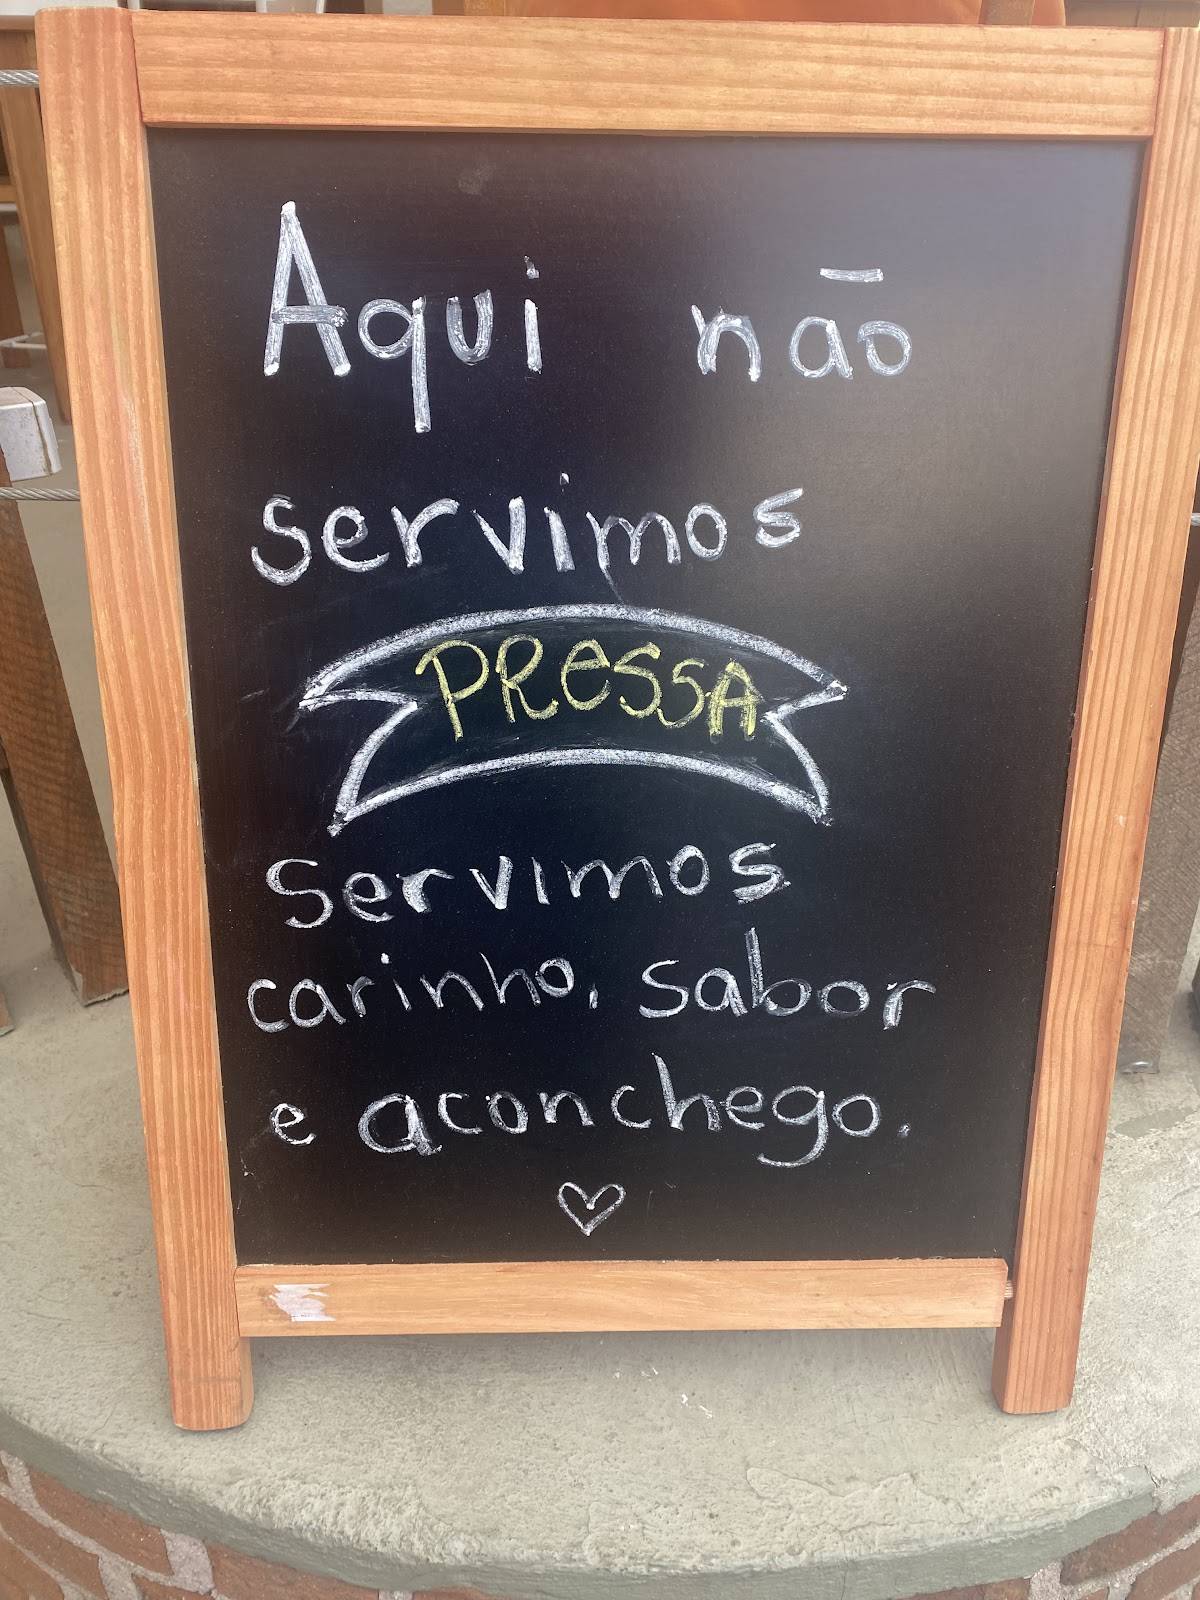 Aqui não
servimos
PResSA
Servimos
carinho, sabor
e aconchego.